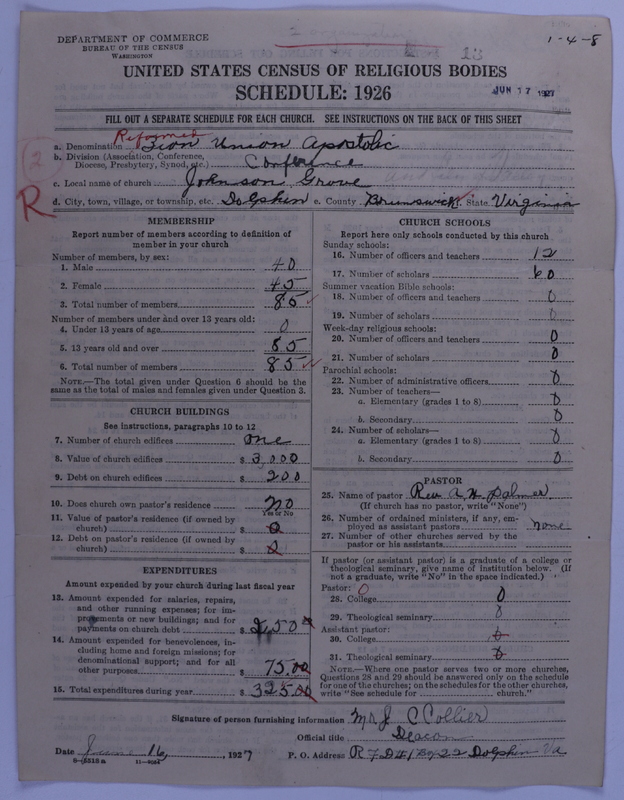 DEPARTMENT OF COMMERCE
BUREAU OF THE CENSUS
WASHINGTON
13
1-4-8
UNITED STATES CENSUS OF RELIGIOUS BODIES
SCHEDULE: 1926
JUN 17 1927
FILL OUT A SEPARATE SCHEDULE FOR EACH CHURCH. SEE INSTRUCTIONS ON THE BACK OF THIS SHEET
Reformed
a. Denomination Zion Union Apostolic
b. Division (Association, Conference, Diocese, Presbytery, Synod, etc.) Conference
c. Local name of church Johnson Grove
d. City, town, village, or township, etc. Dolphin e. County Brunswick State Virginia
2
R
MEMBERSHIP
Report number of members according to definition of
member in your church
Number of members, by sex:
1. Male 40
2. Female 45
3. Total number of members 85
Number of members under and over 13 years old:
4. Under 13 years of age 0
5. 13 years old and over 85
6. Total number of members 85
NOTE.—The total given under Question 6 should be the
same as the total of males and females given under Question 3.
CHURCH BUILDINGS
See instructions, paragraphs 10 to 12
7. Number of church edifices one
8. Value of church edifices $ 3,000
9. Debt on church edifices $ 200
10. Does church own pastor's residence no
Yes or No
11. Value of pastor's residence (if owned by
church) $ 0
12. Debt on pastor's residence (if owned by
church) $ 0
EXPENDITURES
Amount expended by your church during last fiscal year
13. Amount expended for salaries, repairs,
and other running expenses; for im-
provements or new buildings; and for
payments on church debt $ 2,50 0
14. Amount expended for benevolences, in-
cluding home and foreign missions; for
denominational support; and for all
other purposes $ 75.00
15. Total expenditures during year $ 325.00
CHURCH SCHOOLS
Report here only schools conducted by this church
Sunday schools:
16. Number of officers and teachers 12
17. Number of scholars 60
Summer vacation Bible schools:
18. Number of officers and teachers 0
19. Number of scholars 0
Week-day religious schools:
20. Number of officers and teachers 0
21. Number of scholars 0
Parochial schools:
22. Number of administrative officers 0
23. Number of teachers—
a. Elementary (grades 1 to 8) 0
b. Secondary 0
24. Number of scholars—
a. Elementary (grades 1 to 8) 0
b. Secondary 0
PASTOR
25. Name of pastor Rev. A. W. Palmer
(If church has no pastor, write "None")
26. Number of ordained ministers, if any, em-
ployed as assistant pastors none
27. Number of other churches served by the
pastor or his assistants
If pastor (or assistant pastor) is a graduate of a college or
theological seminary, give name of institution below. (If
not a graduate, write "No" in the space indicated.)
Pastor: 0
28. College 0
29. Theological seminary 0
Assistant pastor:
30. College 0
31. Theological seminary 0
NOTE.—Where one pastor serves two or more churches,
Questions 28 and 29 should be answered only on the schedule
for one of the churches; on the schedules for the other churches,
write "See schedule for church."
Signature of person furnishing information Mr J C Collier
Official title Deacon
Date June 16, 1927 P. O. Address R F D #1 Box 22 Dolphin Va
8-5518a 11-8084